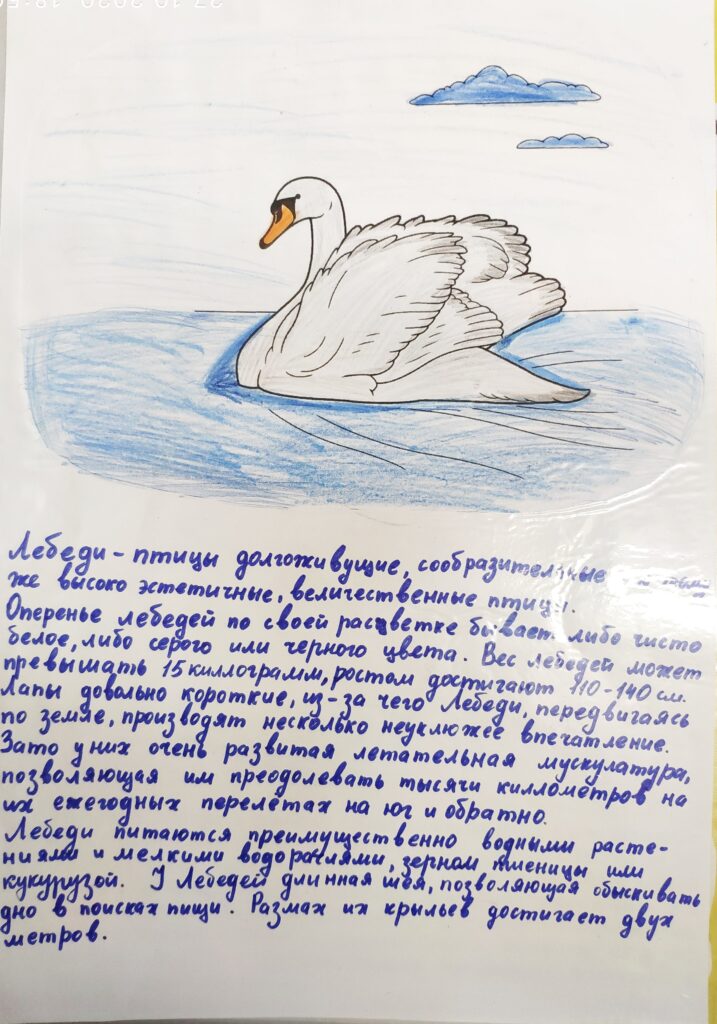 Лебеди - птицы долгоживущие, сообразительные
же высоко эстетичные, величественные птицы.
Оперенье лебедей по своей расцветке бывает либо чисто
белое, либо серого или черного цвета. Вес лебедей может
превышать 15 киллограмм, ростом достигают 110-140 см.
Лапы довольно короткие, из-за чего Лебеди, передвигаясь
по земле, производят несколько неуклюжее впечатление.
Зато у них очень развитая летательная мускулатура,
позволяющая им преодолевать тысячи киллометров на
их ежегодных перелётах на юг и обратно.
Лебеди питаются преимущественно водными расте-
ниями и мелкими водорослями, зерном пшеницы или
кукурузой. У Лебедей длинная шея, позволяющая обыскивать
дно в поисках пищи. Размах их крыльев достигает двух
метров.